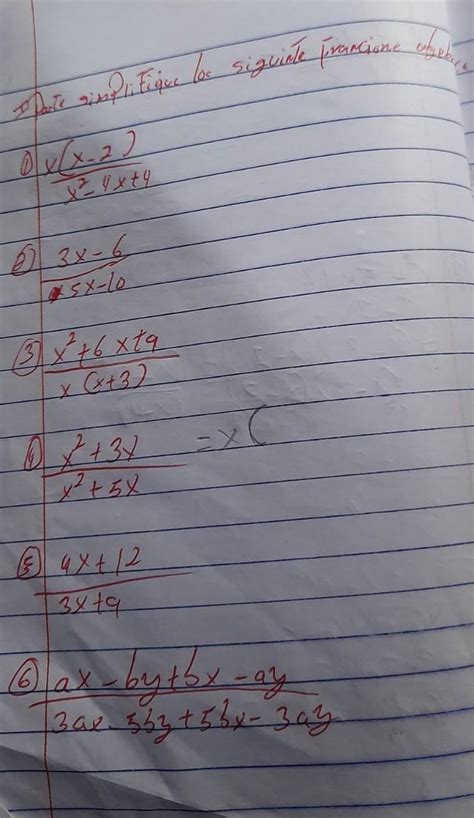 I Parte simplifique los siguiente francione algebraica
① x(x-2)
x²-4x+4
② 3x-6
5x-10
③ x²+6x+9
x(x+3)
④ x²+3x = x(
x²+5x
⑤ 4x+12
3x+9
⑥ ax-by+bx-ay
3ax-5by+5bx-3ay